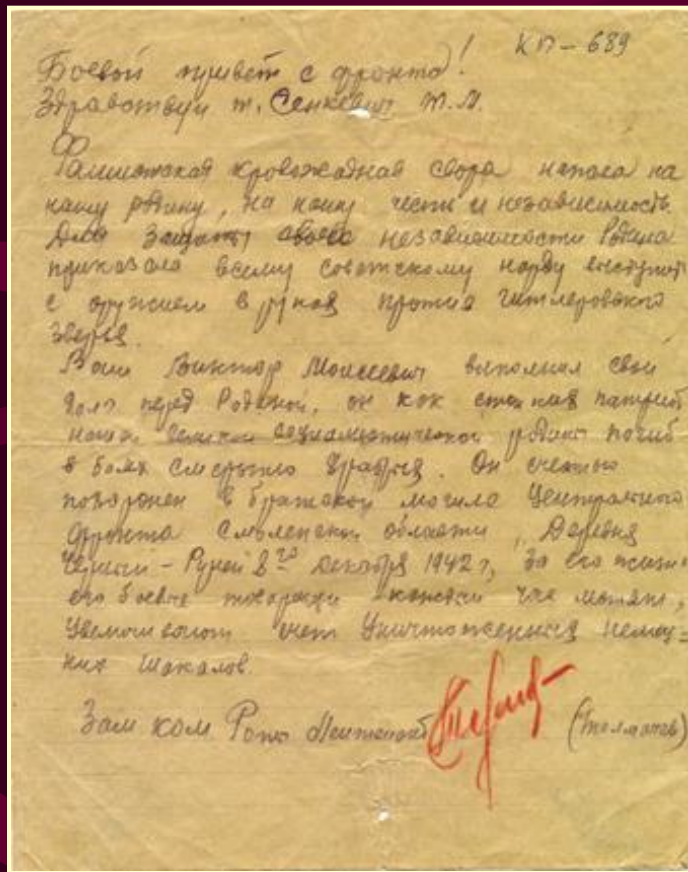 КП – 689
Боевой привет с фронта!
Здравствуй т. Сенкевич М.
Фашистская кровожадная свора напала на
нашу родину, на нашу честь и независимость.
Для защиты своей независимости Родина
приказала всему советскому народу выступить
с оружием в руках против гитлеровского
зверья.
Ваш Виктор Моисеевич выполнил свой
долг перед Родиной, он как патриот
нашей социалистической родины погиб
в боях смертью храбрых. Он с честью
похоронен в братской могиле Центрального
фронта Смоленской области, Деревня
Черный – Ручей 8го Декабря 1942 г, За его жизнь
его боевые товарищи каждый час
счет уничтоженных немец=
ких шакалов.
Зам ком Роты Лейтенант (Толмачев)